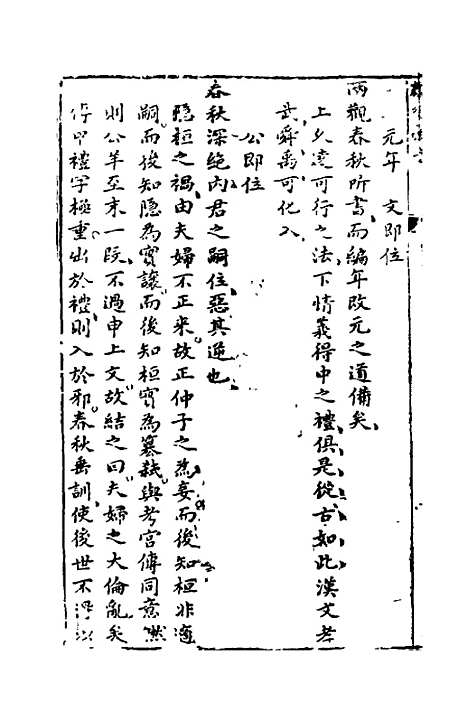 元年　文即位
兩觀春秋所書而編年改元之道備矣
上久遠可行之法下情義得中之禮俱是從古如此漢文孝
武舜禹可化入
公即位
春秋深絶內君之嗣位惡其逆也
隱桓之禍由夫婦不正來故正仲子之為妾而後知桓非適
嗣而後知隱為實讓而後知桓實為簒弒與考宮傳同意然
則公羊至末一段不過申上文故結之曰夫婦之大倫亂矣
禮字極重出於禮則入於邪春秋垂訓使後世不